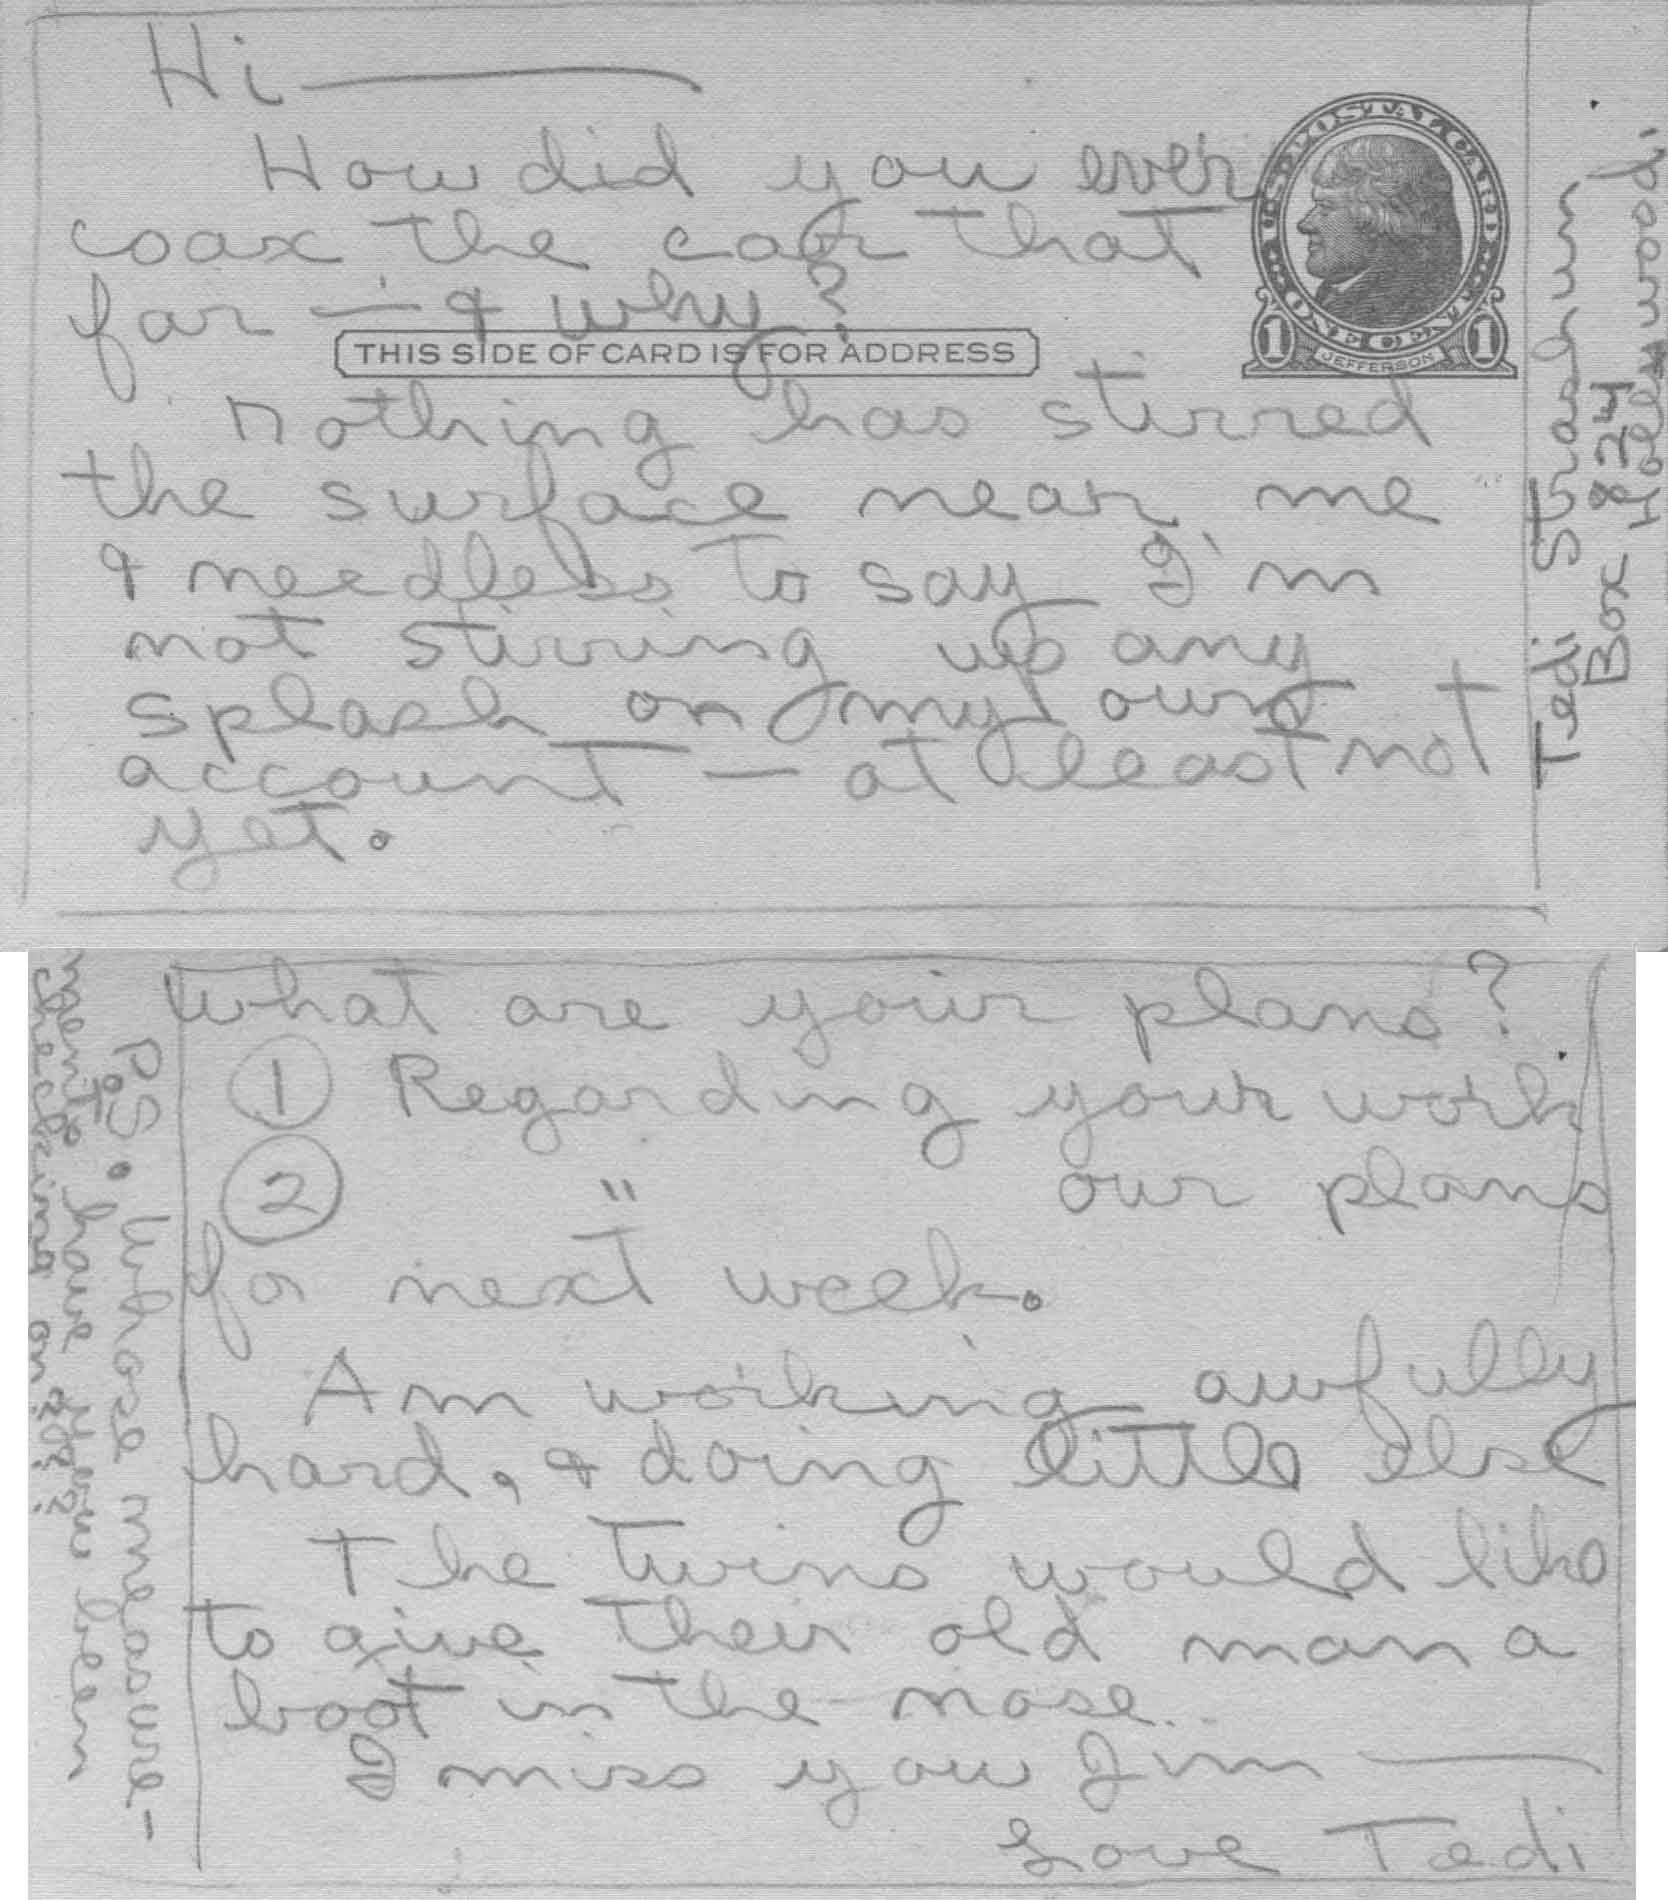 Hi —
How did you ever
coax the car that
far — & why?
THIS SIDE OF CARD IS FOR ADDRESS
U.S. POSTAL CARD
1 JEFFERSON 1
ONE CENT
Nothing has stirred
the surface near me
& needless to say I'm
not stirring up any
splash on my own
account — at least not
yet.
Tedi
Box 824
Hollywood
What are your plans?
① Regarding your work
② " our plans
for next week.
Am working awfully
hard, & doing little else
The twins would like
to give their old man a
boot in the nose.
I miss you Jim —
Love Tedi
P.S. Whose measure-
ments have you been
checking on ???